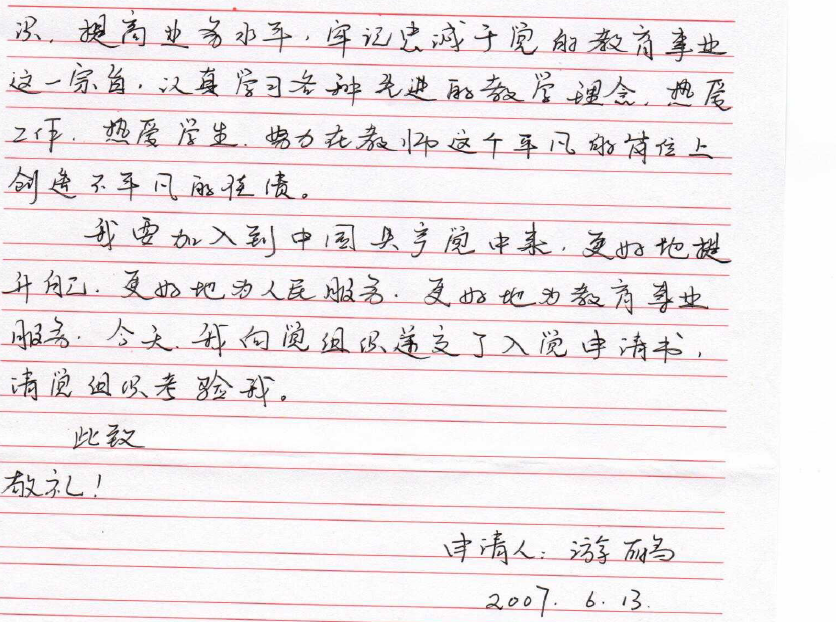 识，提高业务水平，牢记忠诚于党的教育事业
这一宗旨，认真学习各种先进的教学理念，热爱
工作，热爱学生，努力在教师这个平凡的岗位上
创造不平凡的佳绩。
我要加入到中国共产党中来，更好地提
升自己，更好地为人民服务，更好地为教育事业
服务。今天，我向党组织递交了入党申请书，
请党组织考验我。
此致
敬礼！
申请人：游
2007. 6. 13.